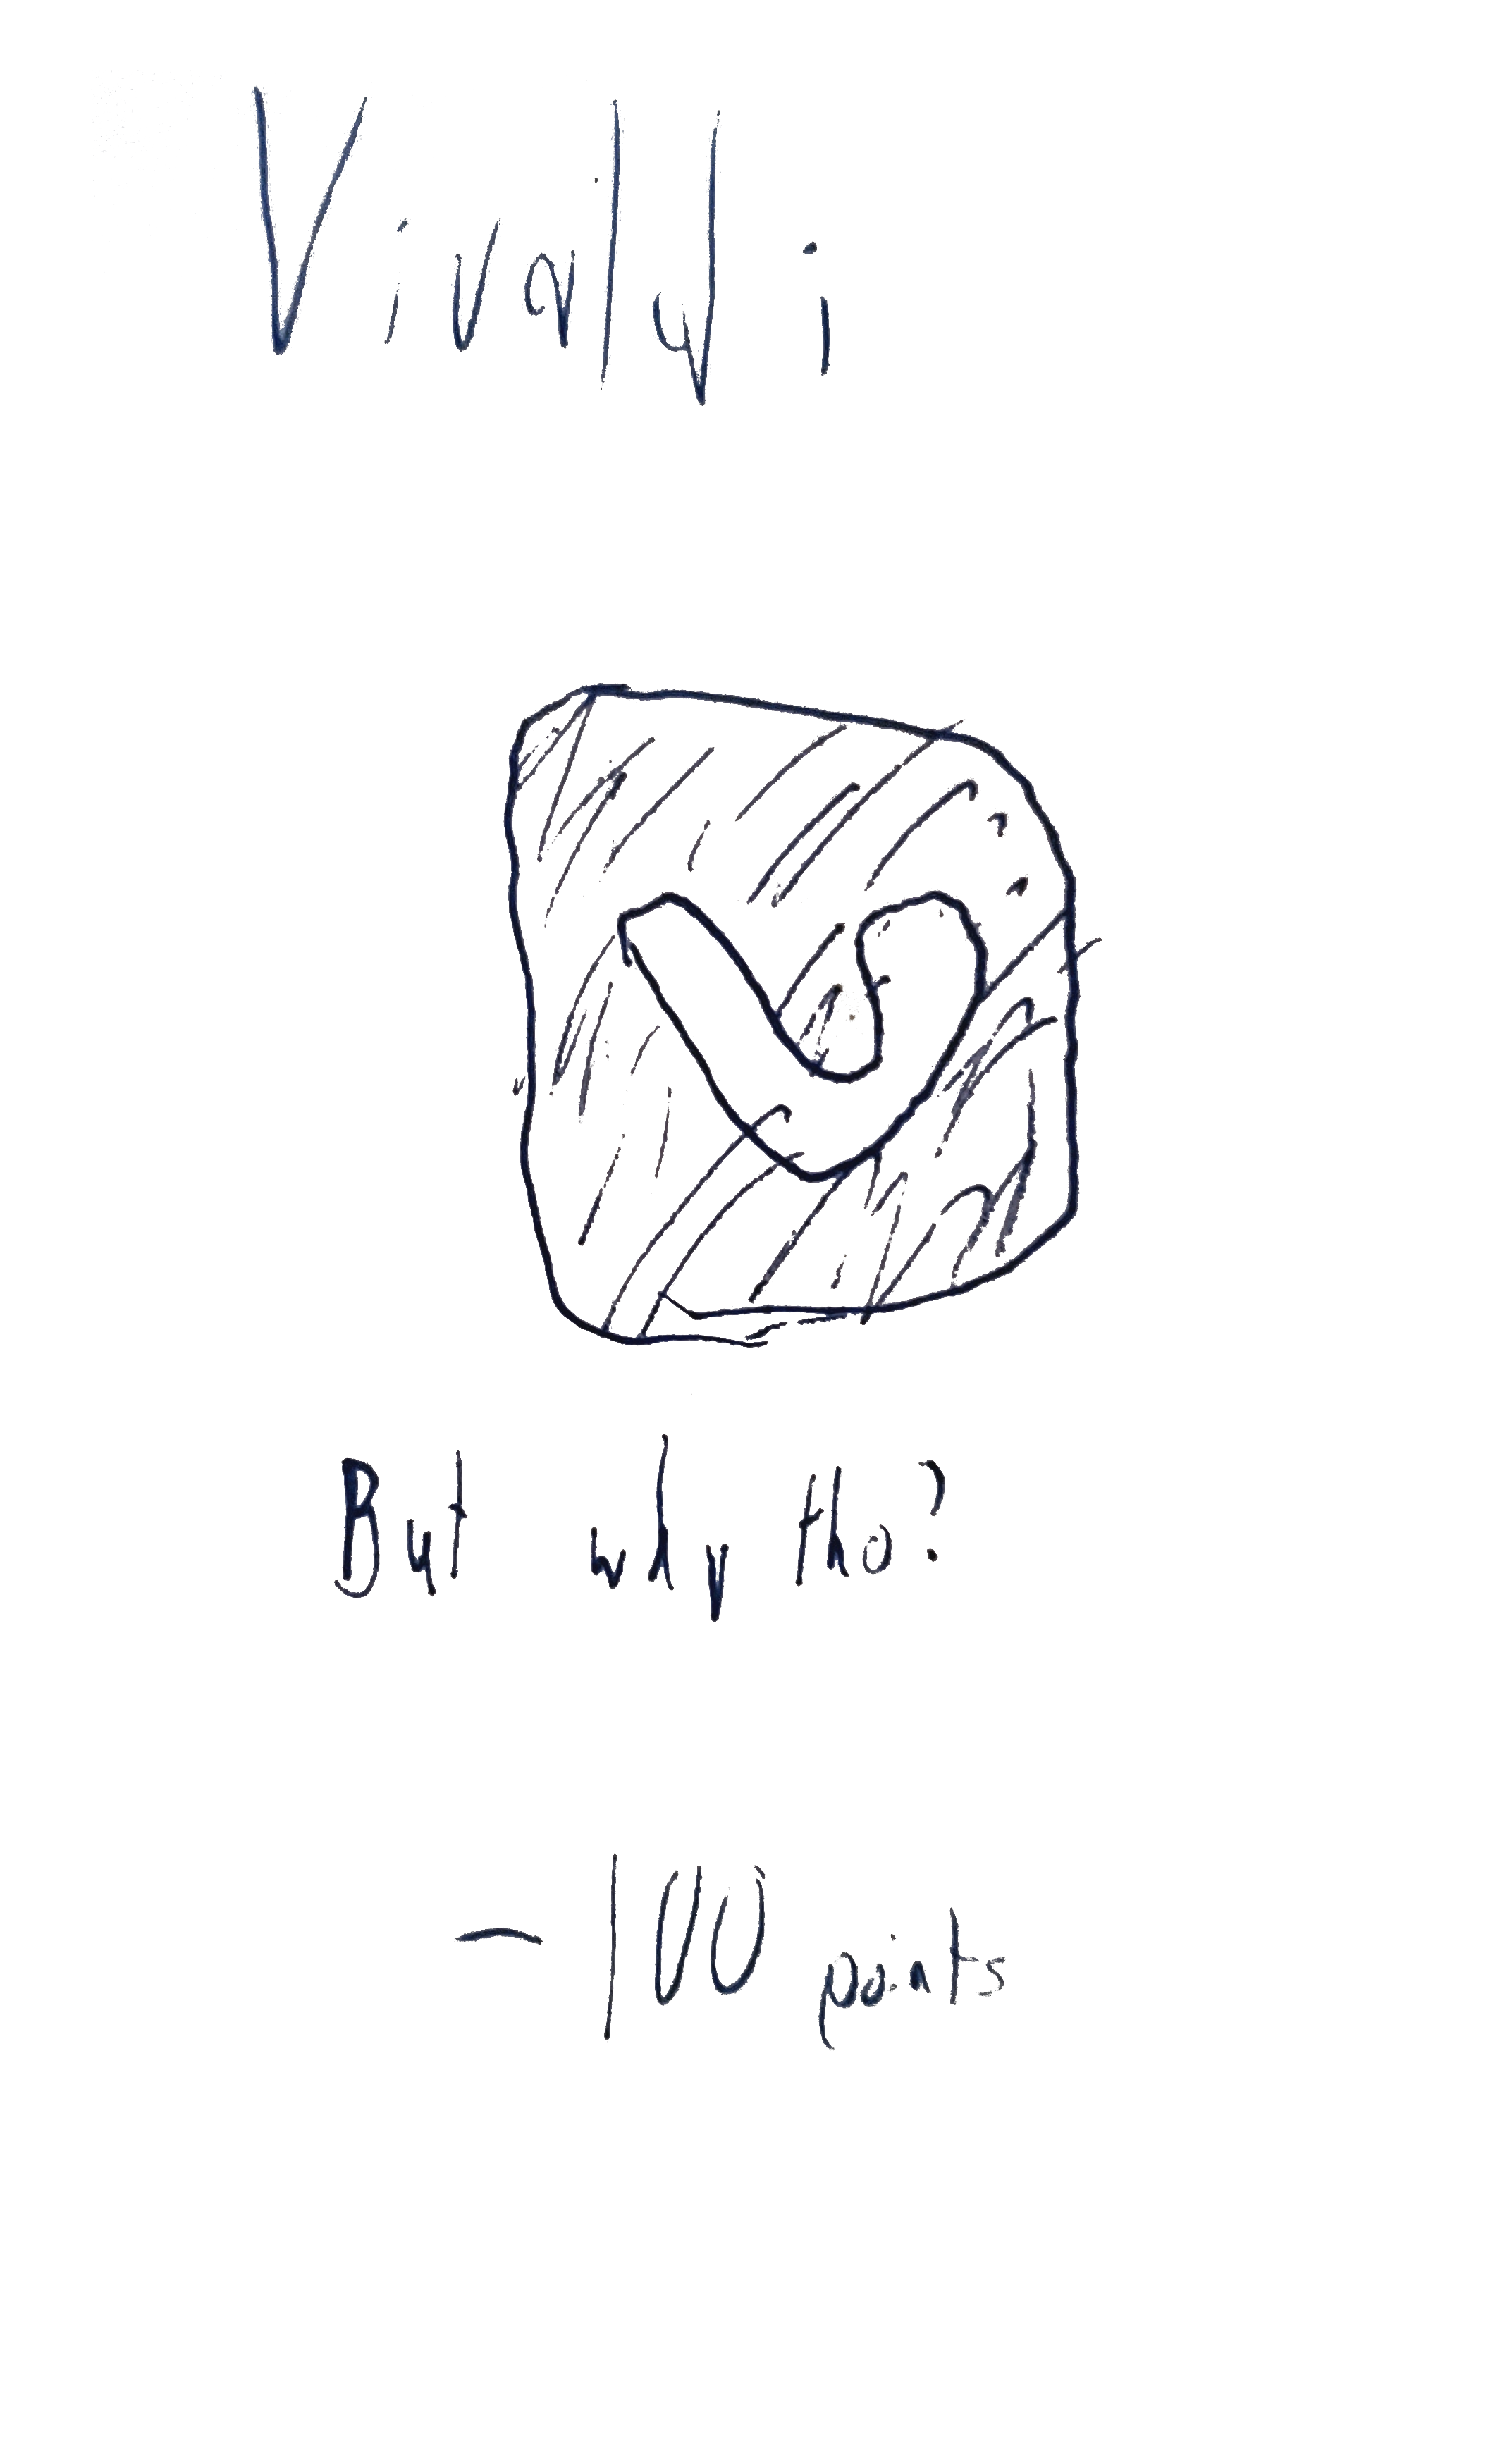 Vivaldi
But why tho?
-100 points